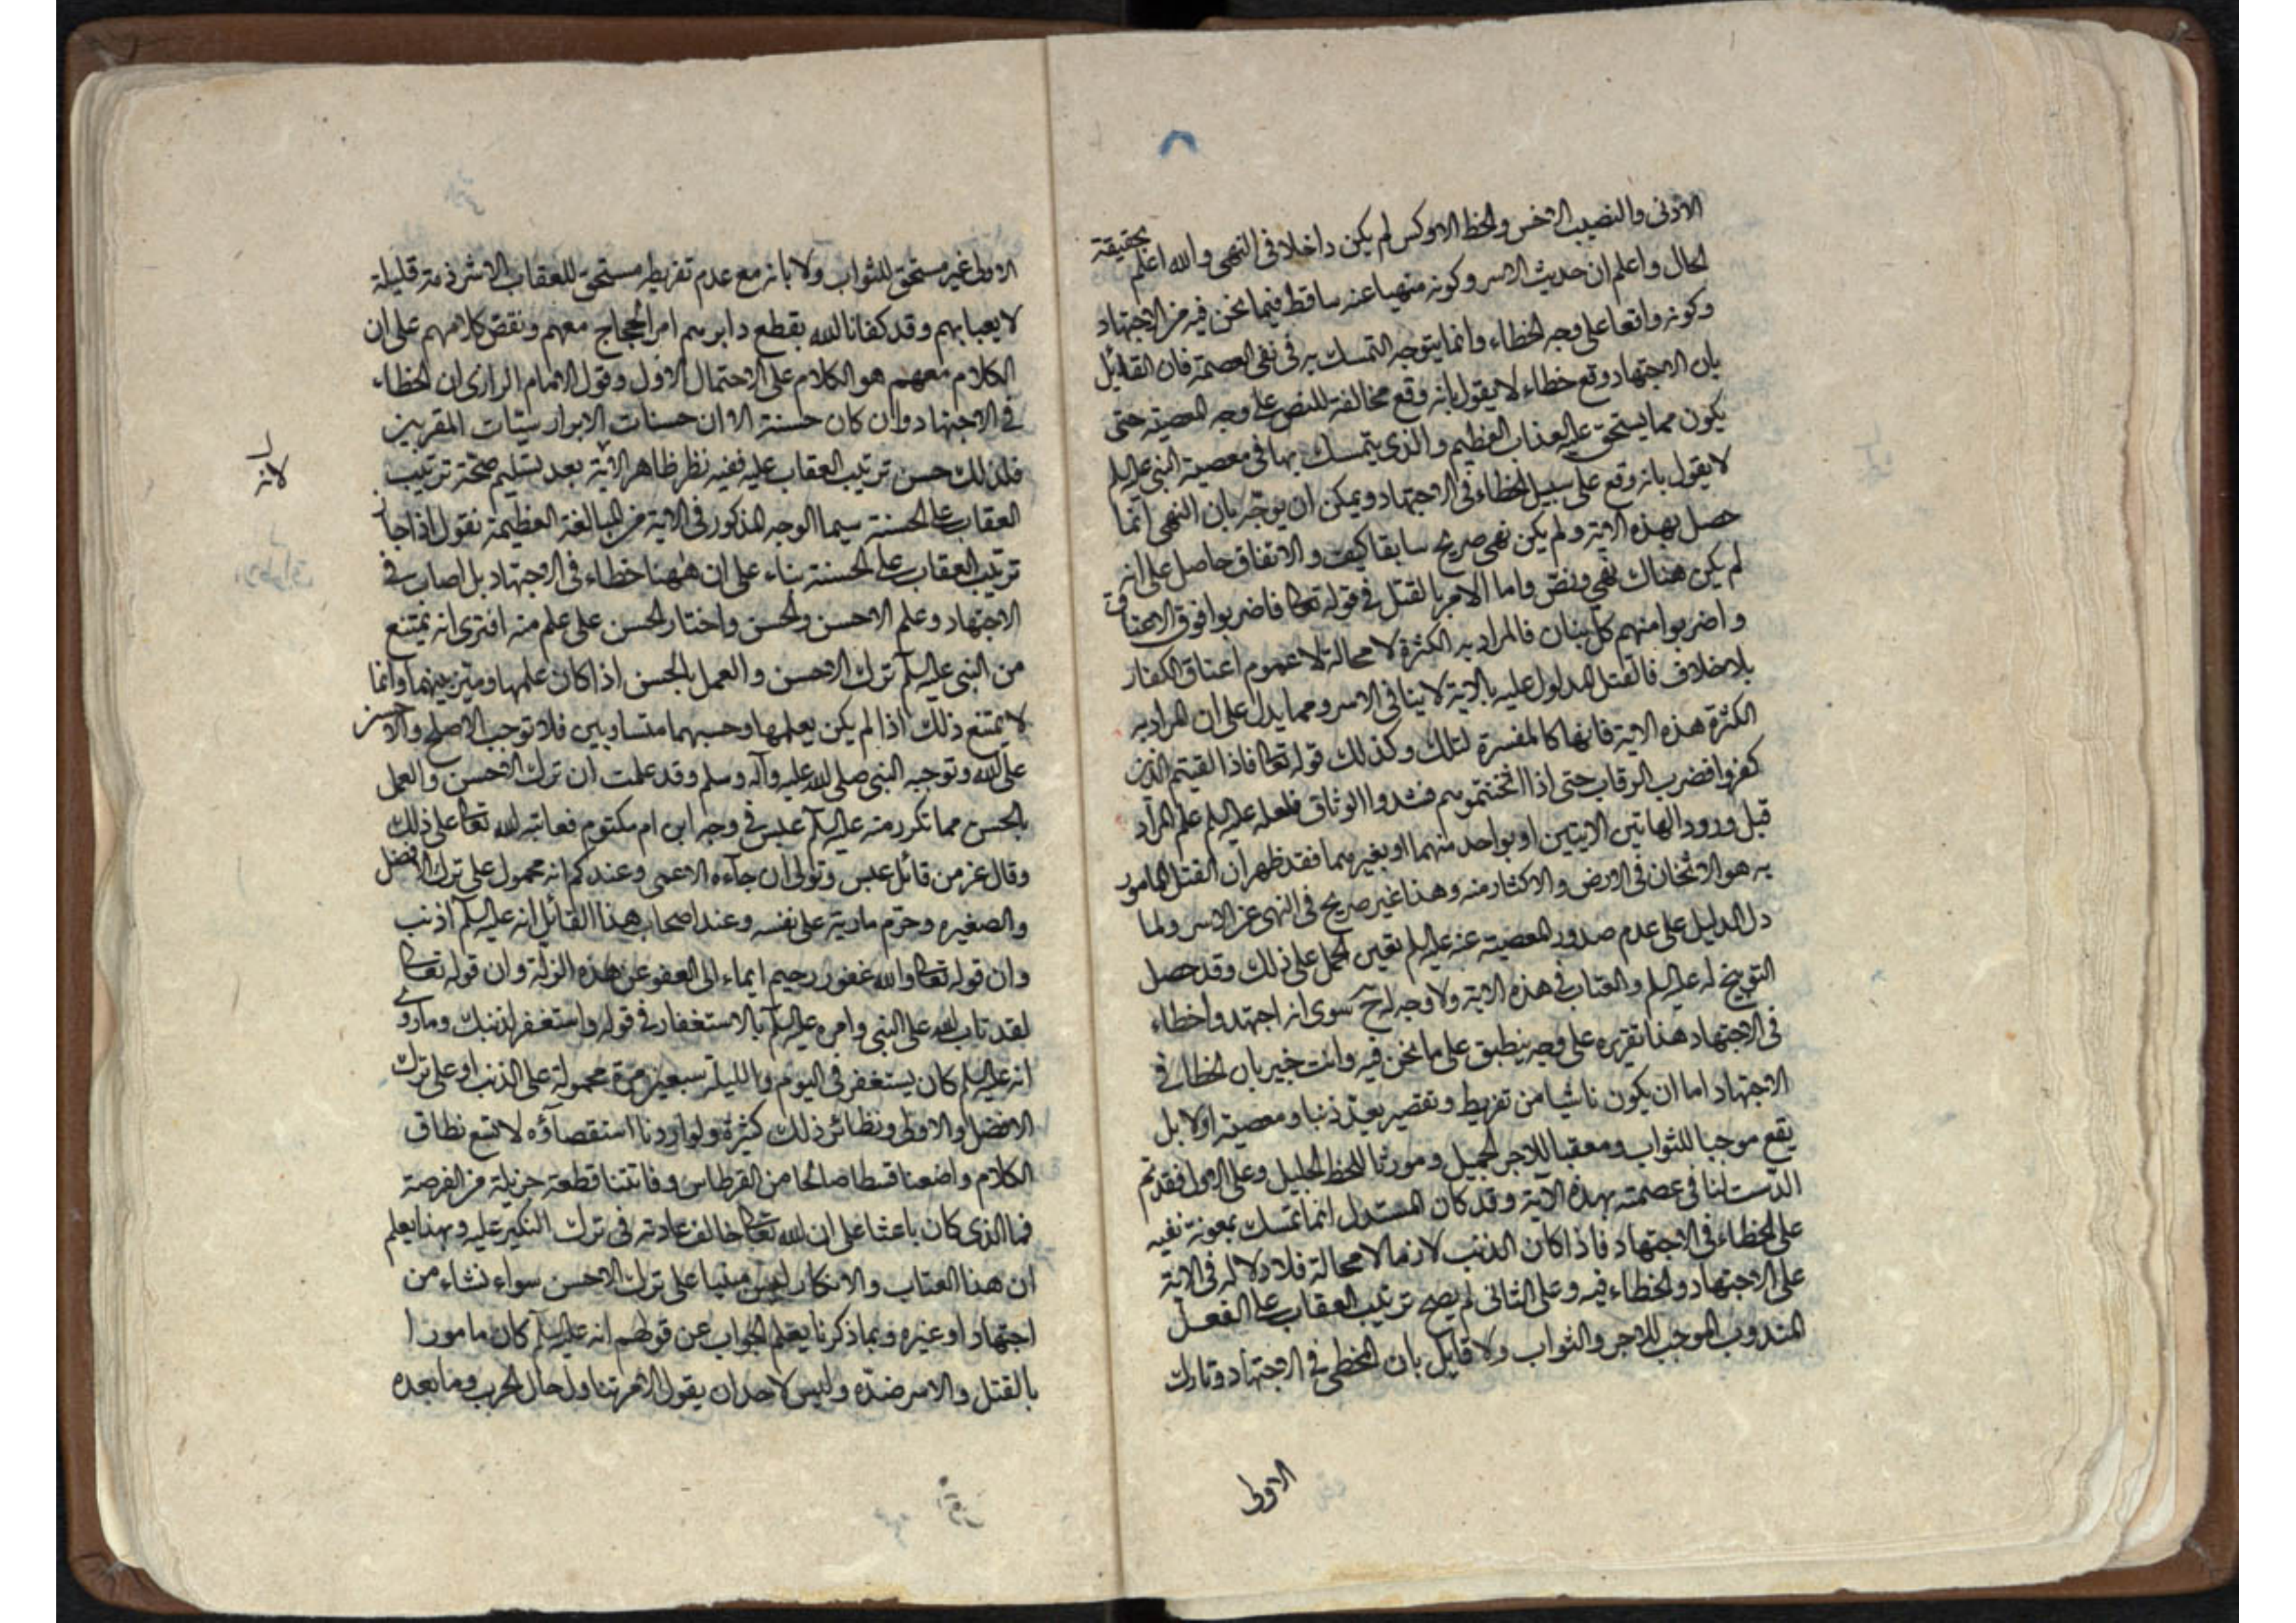 الادنى والنصيب الاخس والحظ الاوكس لم يكن داخلا فى النهى والله اعلم بحقيقة
الحال واعلم ان حديث الاسر وكونه منهيا عنه ساقط فيما نحن فيه من الاجتهاد
وكونه واقعا على وجه الخطاء وانما يتوجه التمسك به فى نفى العصمة فان القائل
بان الاجتهاد وقع خطاء لا يقول بانه وقع مخالفة للنص على وجه المعصية حتى
يكون مما يستحق عليه العذاب العظيم والذى يتمسك بها فى معصية النبى عليه السلم
لا يقول بانه وقع على سبيل الخطاء فى الاجتهاد ويمكن ان يوجه بان النهى انما
حصل بهذه الاية ولم يكن نهى صريح سابقا كيف والاتفاق حاصل على انه
لم يكن هناك نهى ونص واما الامر بالقتل فى قوله تعالى فاضربوا فوق الاعناق
واضربوا منهم كل بنان فالمراد به الكثرة لا محالة لا عموم اعناق الكفار
بلا خلاف فالقتل المدلول عليه بالاية لا ينافى الاسر ومما يدل على ان المراد به
الكثرة هذه الاية فانها كالمفسرة لتلك وكذلك قوله تعالى فاذا لقيتم الذين
كفروا فضرب الرقاب حتى اذا اثخنتموهم فشدوا الوثاق فلعله عليه السلم علم المراد
قبل ورود الهاتين الايتين او بواحد منهما او بغيرهما فقد ظهر ان القتل المامور
به هو الاثخان فى الارض والاكثار منه وهذا غير صريح فى النهى عن الاسر ولما
دل الدليل على عدم صدور المعصية عنه عليه السلم تعين الحمل على ذلك وقد حصل
التوبيخ له عليه السلم والعتاب فى هذه الاية ولا وجه له ح سوى انه اجتهد واخطاء
فى الاجتهاد هذا تقريره على وجه ينطبق على ما نحن فيه وانت خبير بان الخطا فى
الاجتهاد اما ان يكون ناشيا من تفريط وتقصير يعد ذنبا ومعصية اولا بل
يقع موجبا للثواب ومعقبا للاجر الجميل ومورثا للحظ الجليل وعلى الاول فقد تم
الدست لنا فى عصمته بهذه الاية وقد كان المستدل انما تمسك بمعونة نفيه
على الخطاء فى الاجتهاد فاذا كان الذنب لازما لا محالة فلا دلالة فى الاية
على الاجتهاد والخطاء فيه وعلى الثانى لم يصح ترتيب العقاب على الفعل
المندوب الموجب للاجر والثواب ولا قايل بان المخطى فى الاجتهاد وتارك
الاولى
الاولى غير مستحق للثواب ولا بانه مع عدم تفريطه مستحق للعقاب الا شرذمة قليلة
لا يعبا بهم وقد كفانا الله بقطع دابرهم امر الحجاج معهم ونقض كلامهم على ان
الكلام معهم هو الكلام على الاحتمال الاول وقول الامام الرازى ان الخطاء
فى الاجتهاد وان كان حسنة الا ان حسنات الابرار سيئات المقربين
فلذلك حسن ترتيب العقاب عليه ففيه نظر ظاهر لانه بعد تسليم صحة ترتيب
لانه
العقاب على الحسنة سيما الوجه المذكور فى الاية من المبالغة العظيمة نقول اذا جاز
ترتيب العقاب على الحسنة بناء على ان ههنا خطاء فى الاجتهاد بل اصاب فى
الاجتهاد وعلم الاحسن والحسن واختار الحسن على علم منه افترى انه يمتنع
من النبى عليه السلم ترك الاحسن والعمل بالحسن اذا كان علمها وميز بينهما وانما
لا يمتنع ذلك اذا لم يكن يعلمها وحسبهما متساويين فلا توجب الاصلح والاحسن
على الله وتوجيه النبى صلى الله عليه وآله وسلم وقد علمت ان ترك الاحسن والعمل
بالحسن مما تكرر منه عليه السلم عبس فى وجه ابن ام مكتوم فعاتبه الله تعالى على ذلك
وقال عز من قائل عبس وتولى ان جآءه الاعمى وعندكم انه محمول على ترك الافضل
والصغيره وحرم مارية على نفسه وعند اصحاب هذا القائل انه عليه السلم اذنب
وان قوله تعالى والله غفور رحيم ايماء الى العفو عن هذه الزلة وان قوله تعالى
لقد تاب الله على النبى وامره عليه السلم بالاستغفار فى قوله واستغفر لذنبك وما روى
انه عليه السلم كان يستغفر فى اليوم والليلة سبعين مرة محمولة على الذنب او على ترك
الافضل والاولى ونظائر ذلك كثيرة ولو اردنا استقصآؤه لاتسع نطاق
الكلام واضعنا قسطا صالحا من القرطاس وفاتتنا قطعة جزيلة من الفرصة
فما الذى كان باعثا على ان الله تعالى خالف عادته فى ترك النكير عليه وبهذا يعلم
ان هذا العتاب والانكار ليس مبنيا على ترك الاحسن سواء نشاء من
اجتهاد او غيره وبما ذكرنا يعلم الجواب عن قولهم انه عليه السلم كان مامورا
بالقتل والاسر ضده وليس لاحد ان يقول الامر تناول حال الحرب وما بعده